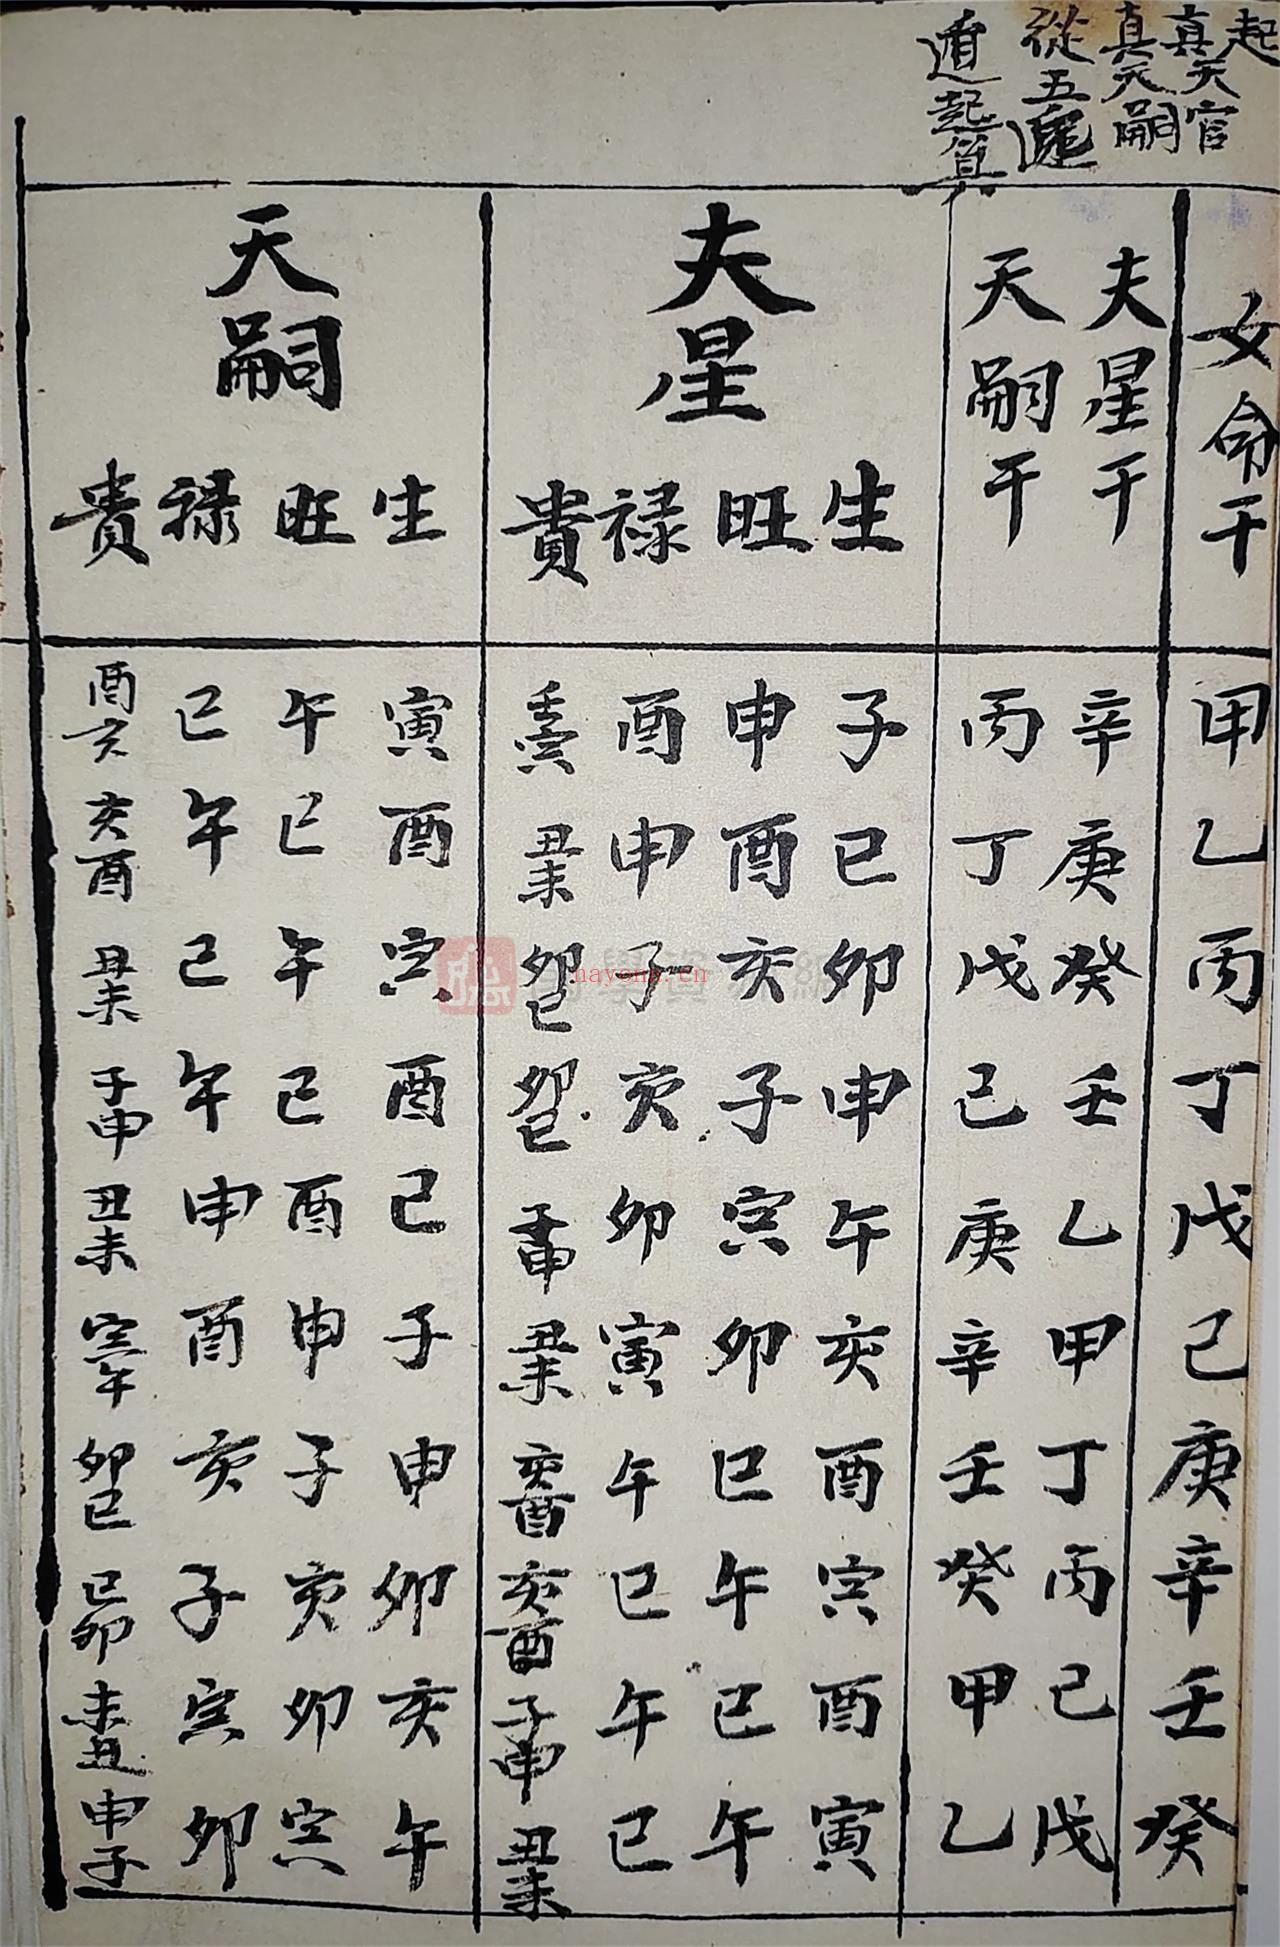 起
真天官
真天嗣
從五
遁起算
女命干 甲乙丙丁戊己庚辛壬癸
夫星干 辛庚癸壬乙甲丁丙己戊
天嗣干 丙丁戊己庚辛壬癸甲乙
夫星
生 子巳卯申午亥酉寅酉寅
旺 申酉亥子寅卯巳午巳午
禄 酉申子亥卯寅午巳午巳
貴 丑未 卯巳 卯巳 子申 丑未 亥酉 亥酉 子申 丑未
天嗣
生 寅酉寅酉巳子申卯亥午
旺 午巳午巳酉申子亥卯寅
禄 巳午巳午申酉亥子寅卯
貴 酉亥 亥酉 丑未 子申 丑未 寅午 卯巳 巳卯 未丑 申子
nayona.cn